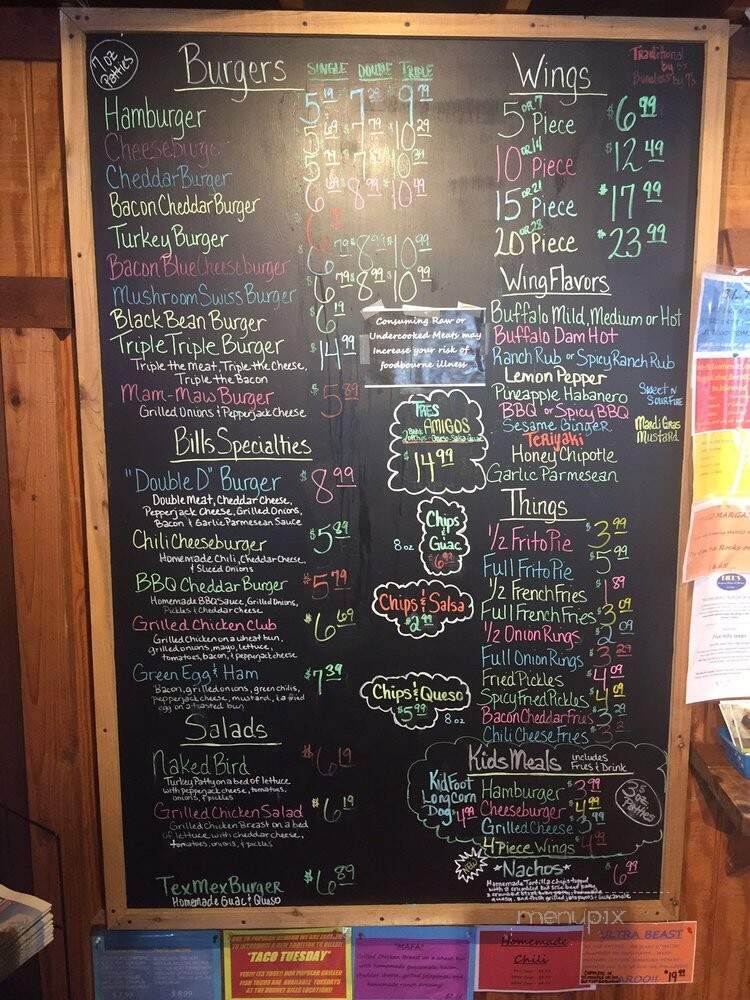 7 oz
Patties
Burgers
SINGLE DOUBLE TRIPLE
Hamburger
Cheeseburger
Cheddar Burger
Bacon Cheddar Burger
Turkey Burger
Bacon Blue Cheese burger
Mushroom Swiss Burger
Black Bean Burger
Triple Triple Burger $14.99
Triple the Meat, Triple the Cheese,
Triple the Bacon
Mam-Maws Burger $5.89
Grilled Onions & Pepperjack Cheese
Bills Specialties
"Double D" Burger $8.99
Double Meat, Cheddar Cheese,
Pepperjack Cheese, Grilled Onions,
Bacon & Garlic Parmesean Sauce
Chili Cheeseburger $5.89
Homemade Chili, Cheddar Cheese,
& Sliced Onions
BBQ Cheddar Burger $5.79
Homemade BBQ Sauce, Grilled Onions,
Pickles & Cheddar Cheese
Grilled Chicken Club $6.69
Grilled Chicken on a wheat bun,
grilled onions, mayo, lettuce,
tomatoes, bacon, & pepperjack cheese
Green Egg & Ham $7.39
Bacon, grilled onions, green chilis,
pepperjack cheese, mustard, & a fried
egg on a toasted bun
Salads
Naked Bird $6.19
Turkey Patty on a bed of lettuce
with pepperjack cheese, tomatoes,
onions, & pickles
Grilled Chicken Salad $6.19
Grilled Chicken Breast on a bed
of lettuce with cheddar cheese,
tomatoes, onions, & pickles
TexMex Burger $6.89
Homemade Guac & Queso
Consuming Raw or
Undercooked Meats may
Increase your risk of
foodbourne illness
TRES
AMIGOS
$14.99
Chips
&
Guac
8 oz
Chips & Salsa
$2.99
Chips & Queso
$5.99
8 oz
Wings
Traditional
by 5's
Boneless by 7's
5 or 7 Piece $6.99
10 or 14 Piece $12.49
15 or 21 Piece $17.99
20 or 28 Piece $23.99
Wing Flavors
Buffalo Mild, Medium or Hot
Buffalo Dam Hot
Ranch Rub or Spicy Ranch Rub
Lemon Pepper
Pineapple Habanero
BBQ or Spicy BBQ
Sesame Ginger
Teriyaki
Honey Chipotle
Garlic Parmesean
Sweet N
Sour Fire
Mardi Gras
Mustard
Things
1/2 Frito Pie $3.99
Full Frito Pie $5.99
1/2 French Fries $1.89
Full French Fries $3.09
1/2 Onion Rings $2.09
Full Onion Rings $3.29
Fried Pickles $4.09
Spicy Fried Pickles $4.09
Bacon Cheddar Fries $3.29
Chili Cheese Fries
Kids Meals includes
Fries & Drink
Kid Foot
Long Corn
Dog $4.99
Hamburger $3.99
Cheeseburger $4.99
Grilled Cheese $3.99
4 Piece Wings $4.99
3.5
oz
Patties
*Nachos* $6.99
menupix
"TACO TUESDAY"
"MAFA"
Homemade
Chili
ULTRA BEAST
$19.99